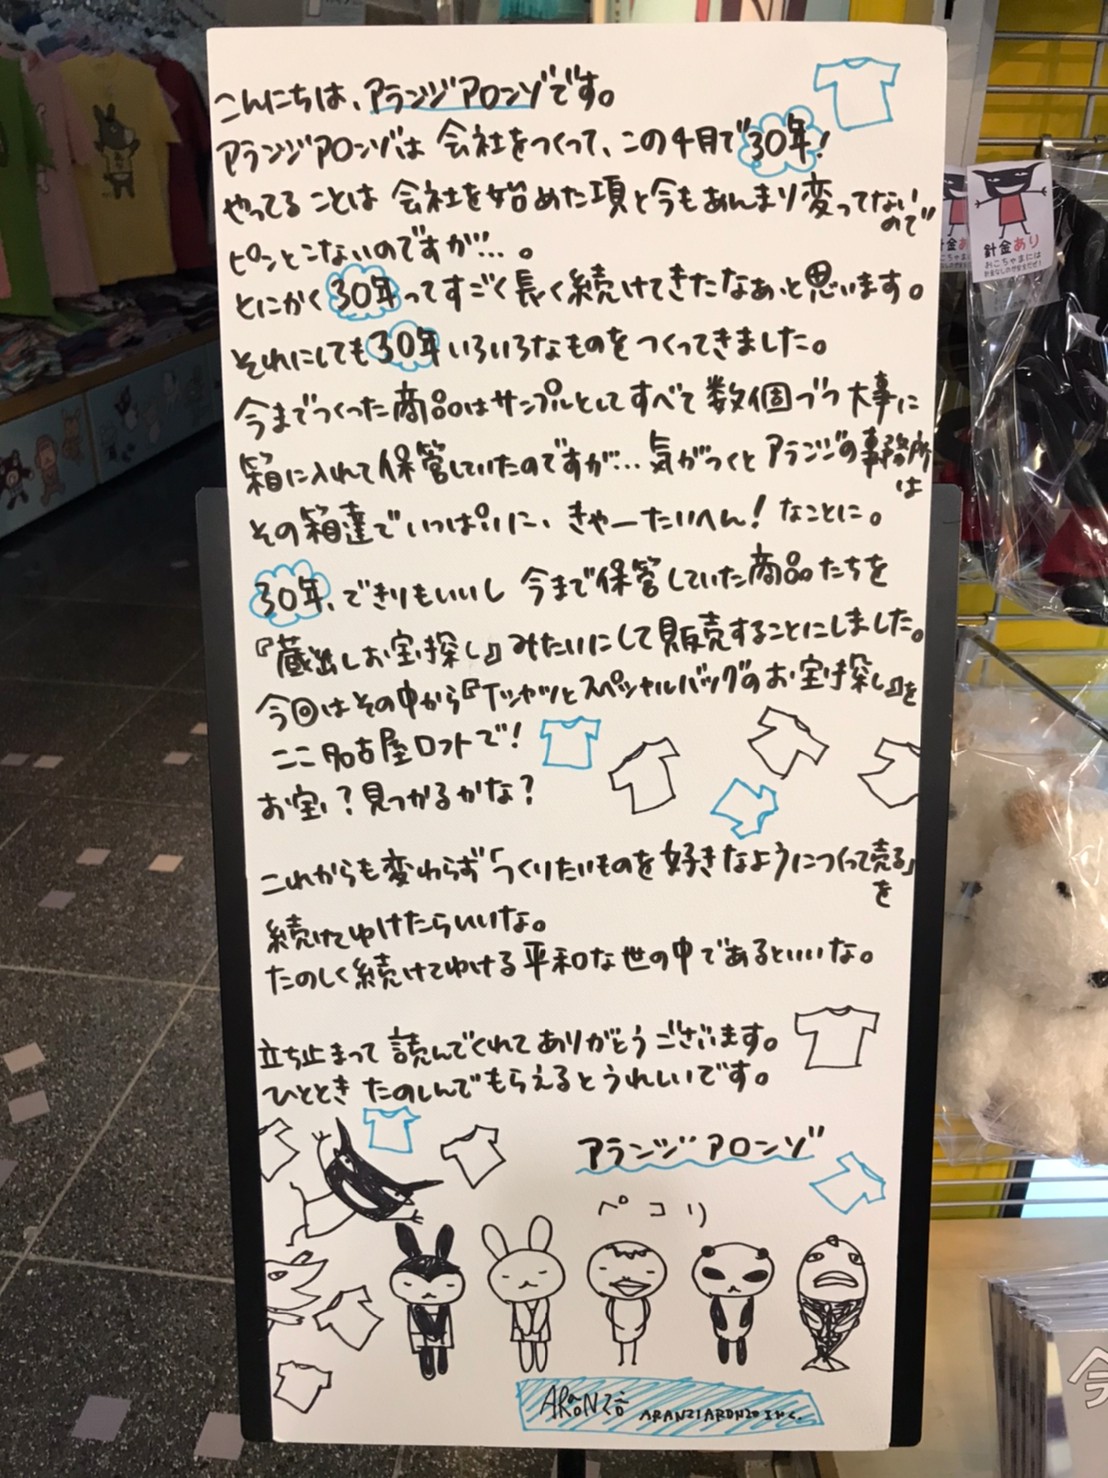 こんにちは、アランジアロンゾです。
アランジアロンゾは 会社をつくって、この4月で30年!
やってることは 会社を始めた項と今もあんまり変ってないので
ピンとこないのですが…。
とにかく30年ってすごく長く続けてきたなぁ、と思います。
それにしても30年いろいろなものをつくってきました。
今までつくった商品はサンプルとしてすべて数個づつ大事に
箱に入れて保管していたのですが…気がつくとアランジの事務所は
その箱達でいっぱいに、きゃーたいへん!なことに。
30年、できりもいいし 今まで保管していた商品たちを
『蔵出しお宝探し』みたいにして販売することにしました。
今回はその中から『Tシャツとスペシャルバッグのお宝探し』を
ここ名古屋ロフトで!
お宝?見つかるかな?
これからも変わらず「つくりたいものを好きなようにつくって売る」を
続けてゆけたらいいな。
たのしく続けてゆける平和な世の中であるといいな。
立ち止まって読んでくれてありがとうございます。
ひとときたのしんでもらえるとうれしいです。
アランジアロンゾ
ペコリ
ARANZI ARONZO INC.
針金あり
おこちゃまには
針金あり
今